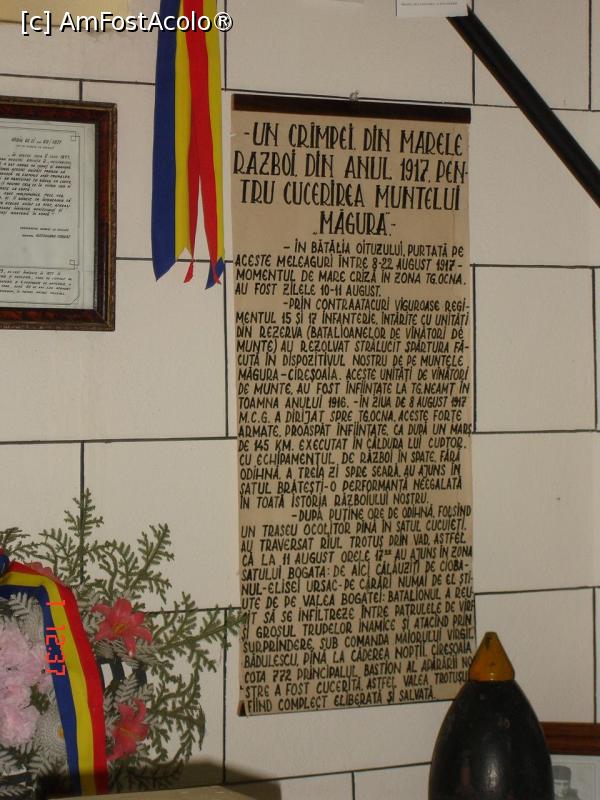 [c] AmFostAcolo®
- UN CRÎMPEI DIN MARELE
RĂZBOI DIN ANUL 1917, PEN-
TRU CUCERIREA MUNTELUI
„MĂGURA”.-
- ÎN BĂTĂLIA OITUZULUI, PURTATĂ PE
ACESTE MELEAGURI ÎNTRE 8-22 AUGUST 1917 -
MOMENTUL DE MARE CRIZĂ ÎN ZONA TG.OCNA,
AU FOST ZILELE 10-11 AUGUST.
- PRIN CONTRAATACURI VIGUROASE REGI-
MENTUL 15 ŞI 17 INFANTERIE, ÎNTĂRITE CU UNITĂŢI
DIN REZERVA (BATALIOANELOR DE VÎNĂTORI DE
MUNTE) AU REZOLVAT STRĂLUCIT SPĂRTURA FĂ-
CUTĂ ÎN DISPOZITIVUL NOSTRU DE PE MUNTELE
MĂGURA - CIREŞOAIA. ACESTE UNITĂŢI DE VÎNĂTORI
DE MUNTE, AU FOST ÎNFIINŢATE LA TG.NEAMŢ ÎN
TOAMNA ANULUI 1916. - ÎN ZIUA DE 8 AUGUST 1917
M.C.G. A DIRIJAT SPRE TG.OCNA, ACESTE FORŢE
ARMATE, PROASPĂT ÎNFIINŢATE, CA DUPĂ UN MARŞ
DE 145 KM. EXECUTAT ÎN CĂLDURA LUI CUPTOR,
CU ECHIPAMENTUL DE RĂZBOI ÎN SPATE, FĂRĂ
ODIHNĂ, A TREIA ZI SPRE SEARĂ, AU AJUNS ÎN
SATUL BRĂTEŞTI - O PERFORMANŢĂ NEEGALATĂ
ÎN TOATĂ ISTORIA RĂZBOIULUI NOSTRU.
- DUPĂ PUŢINE ORE DE ODIHNĂ, FOLSIND
UN TRASEU OCOLITOR PÎNĂ ÎN SATUL CUCUIEŢI,
AU TRAVERSAT RÎUL TROTUŞ PRIN VAD, ASTFEL
CĂ LA 11 AUGUST ORELE 17 AU AJUNS ÎN ZONA
SATULUI BOGATA: DE AICI CĂLĂUZIŢI DE CIOBA-
NUL-ELISEI URSAC-PE CĂRĂRI NUMAI DE EL ŞTI-
UTE DE PE VALEA BOGATEI: BATALIONUL A REU-
ŞIT SĂ SE INFILTREZE ÎNTRE PATRULELE DE VÎRF
ŞI GROSUL TRUPELOR INAMICE ŞI ATACÎND PRIN
SURPRINDERE, SUB COMANDA MAIORULUI VIRGIL
BĂDULESCU, PÎNĂ LA CĂDEREA NOPŢII, CIREŞOAIA
COTA 772 PRINCIPALUL BASTION AL APĂRĂRII NO
STRE A FOST CUCERITĂ, ASTFEL VALEA TROTUŞU
FIIND COMPLECT ELIBERATĂ ŞI SALVATĂ.
1 12:37